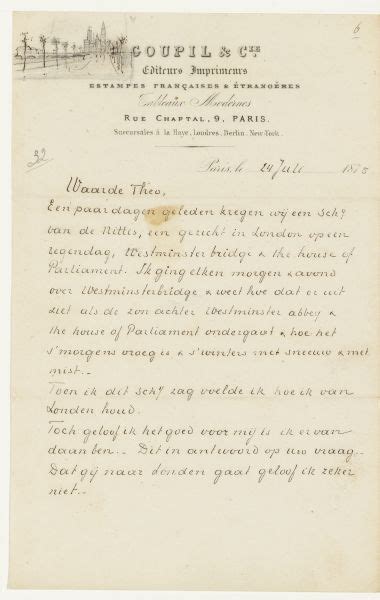 6
GOUPIL & CIE
Editeurs Imprimeurs
ESTAMPES FRANÇAISES & ÉTRANGÈRES
Tableaux Modernes
RUE CHAPTAL, 9, PARIS.
Succursales à la Haye, Londres, Berlin, New-York.
Paris, le 24 Juli 1875
32
Waarde Theo,
Een paar dagen geleden kregen wij een schy
van de Nittis, een gezicht in London op een
regendag, Westminster bridge & the house of
Parliament. Ik ging elken morgen & avond
over Westminsterbridge & weet hoe dat er uit
ziet als de zon achter Westminster abbey &
the house of Parliament ondergaat & hoe het
s'morgens vroeg is & s'winters met sneeuw & met
mist..
Toen ik dit schy zag voelde ik hoe ik van
Londen houd.
Toch geloof ik het goed voor mij is ik er van
daan ben.. Dit in antwoord op uw vraag..
Dat gij naar Londen gaat geloof ik zeker
niet..